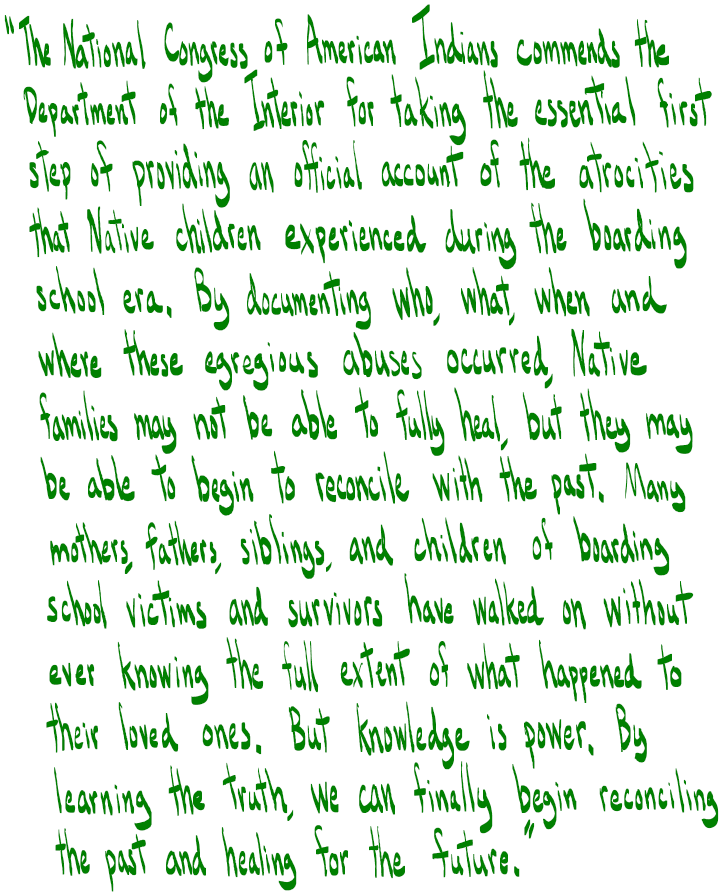 "The National Congress of American Indians commends the
Department of the Interior for taking the essential first
step of providing an official account of the atrocities
that Native children experienced during the boarding
school era. By documenting who, what, when and
where these egregious abuses occurred, Native
families may not be able to fully heal, but they may
be able to begin to reconcile with the past. Many
mothers, fathers, siblings, and children of boarding
school victims and survivors have walked on without
ever knowing the full extent of what happened to
their loved ones. But knowledge is power. By
learning the truth, we can finally begin reconciling
the past and healing for the future."